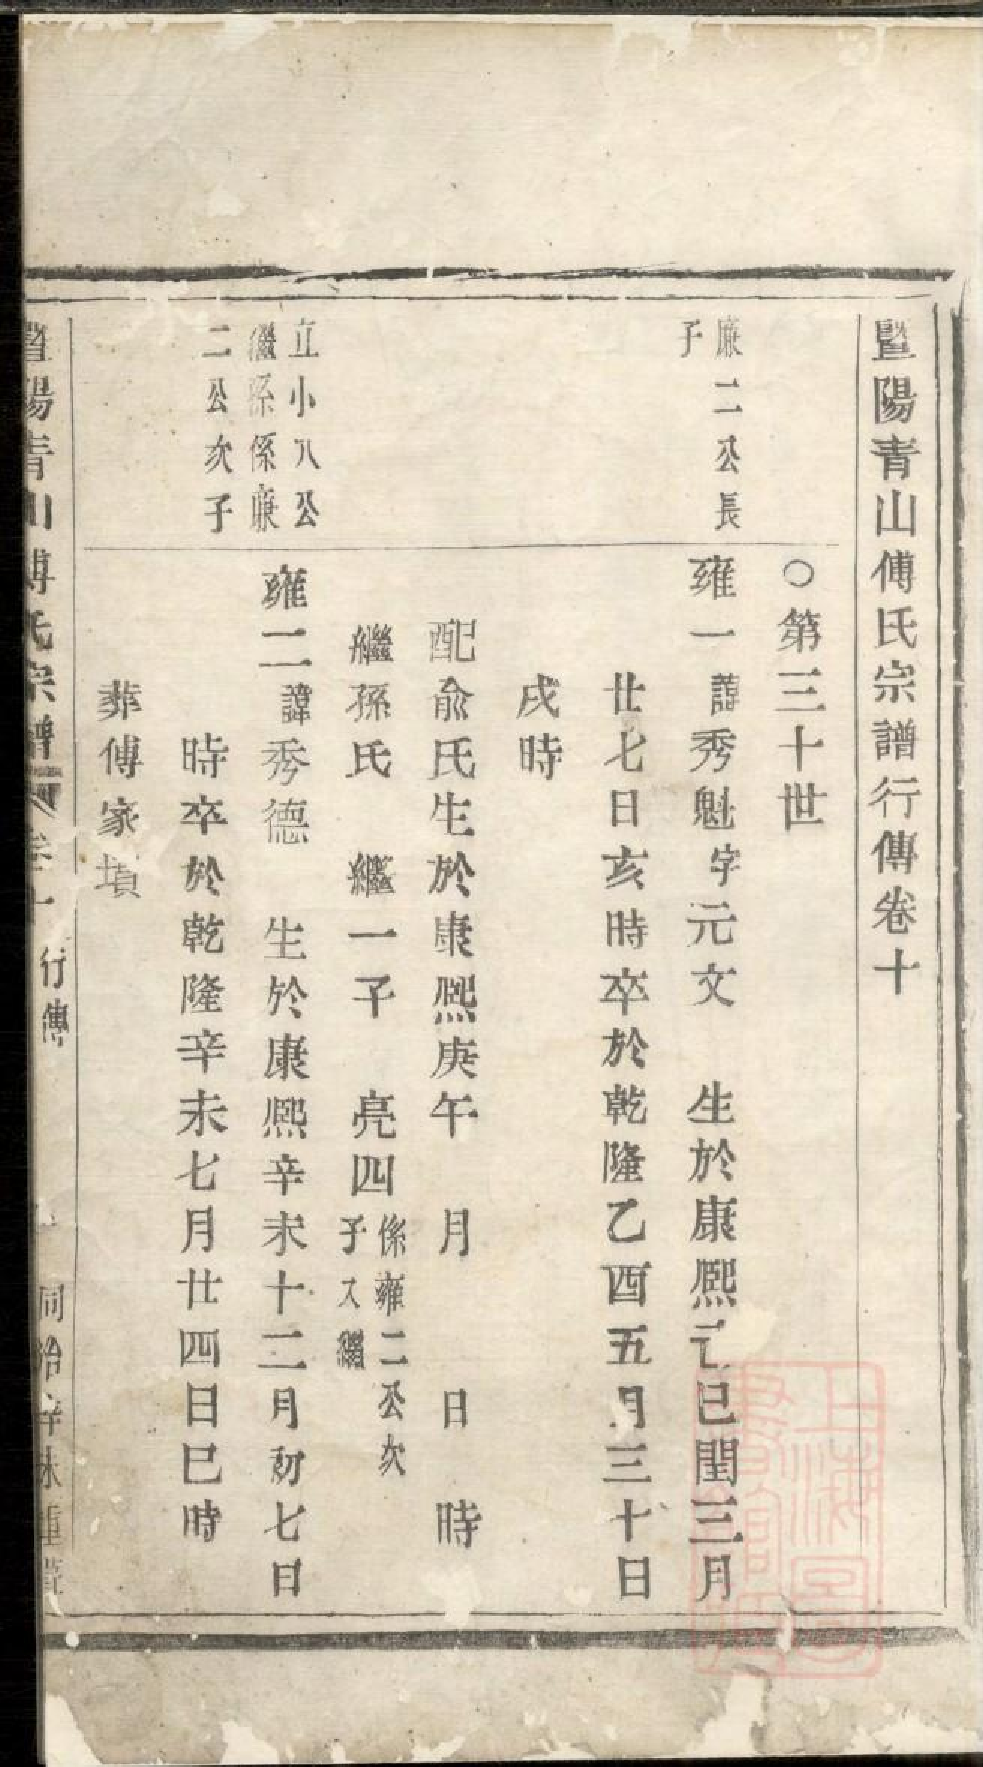 暨陽青山傅氏宗譜行傳卷十
○第三十世
廉二公長
子
雍一諱秀魁字元文　生於康熙己巳閏三月
廿七日亥時卒於乾隆乙酉五月三十日
戌時
配俞氏生於康熙庚午　月　　日　時
繼孫氏　繼一子　亮四係雍二公次
子入繼
立小八公
繼孫係廉
二公次子
雍二諱秀德　生於康熙辛未十二月初七日
時卒於乾隆辛未七月廿四日巳時
葬傅家墳
暨陽青山傅氏宗譜　卷十　行傳　一　同治辛未重
上海圖書館